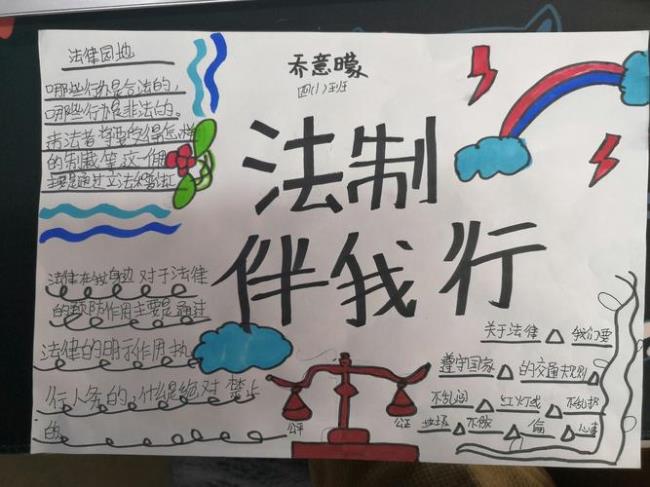 法律园地
哪些行为是合法的,
哪些行为是非法的。
违法者将要受得怎样
的制裁等这一作用
主要是通过立法和
乔意曚
四(1)班
法制
伴我行
法律在我身边 对于法律
的预防作用主要是通过
法律的明示作用执
行人务的,什么是绝对 禁止
的
公平
公正
关于法律 我们要
遵守国家 的交通规则
不乱闯 红灯或 不乱扔
垃圾 不做 偷